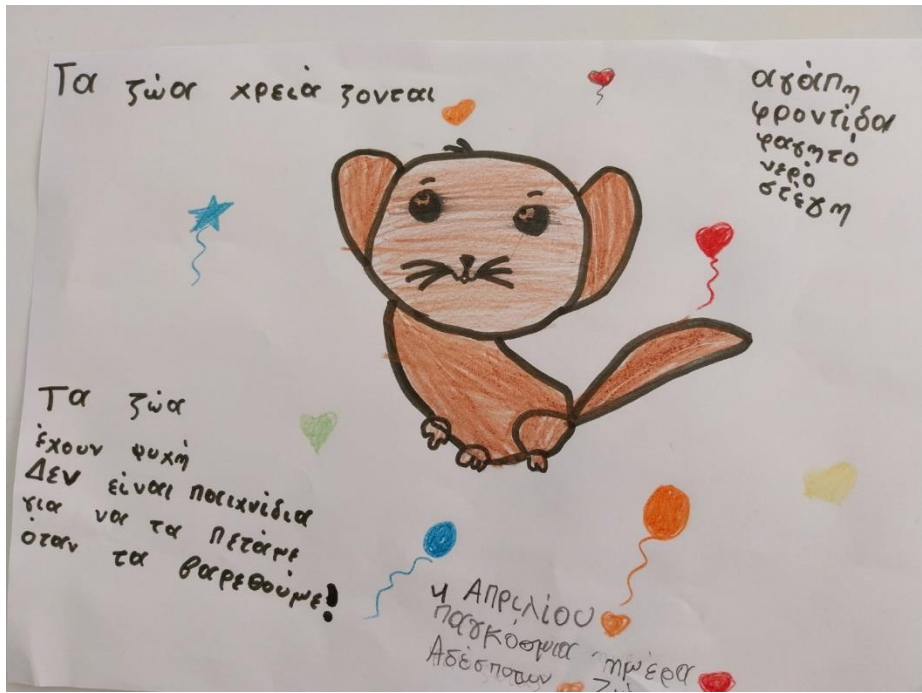 Τα ζώα χρειά ζονται
αγάπη
φροντίδα
φαγητό
νερό
στέγη
Τα ζώα
έχουν ψυχή
Δεν είναι παιχνίδια
για να τα πετάμε
όταν τα βαρεθούμε!
4 Απριλίου
παγκόσμια ημέρα
Αδέσποτων